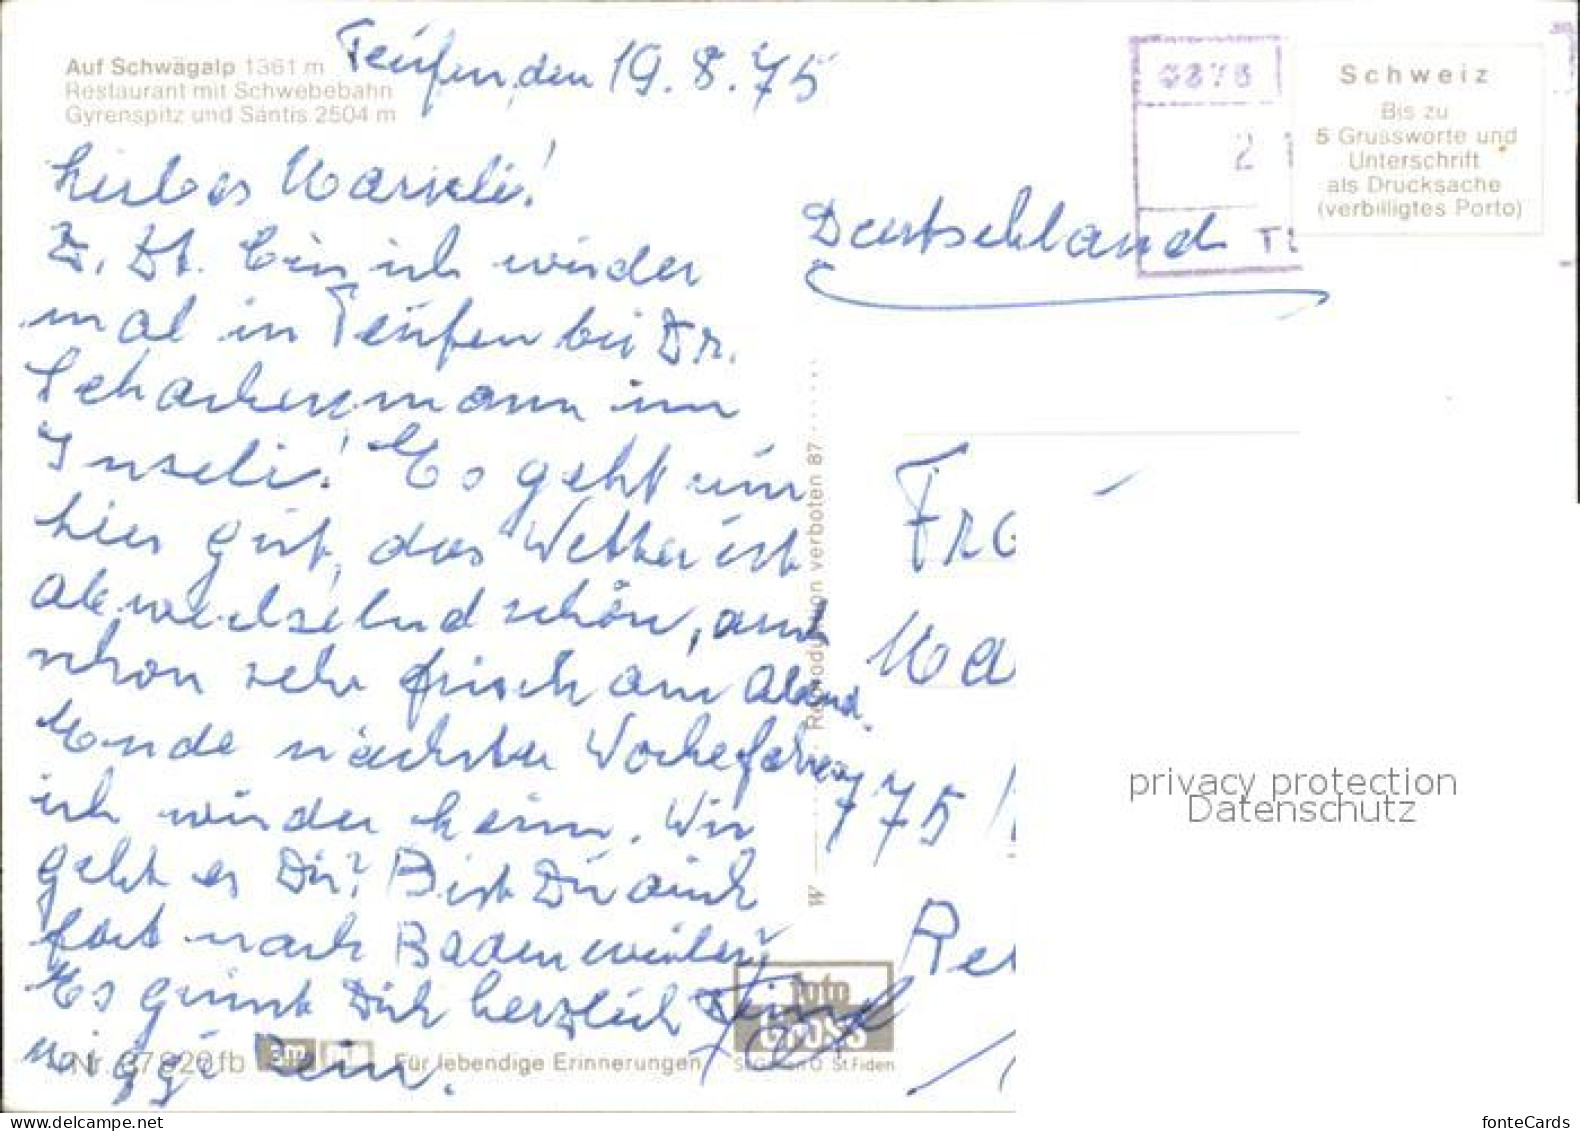 Auf Schwägalp 1361 m
Restaurant mit Schwebebahn
Gyrenspitz und Säntis 2504 m
Teufen, den 19.8.75
Liebes Marieli!
Z. Zt. bin ich wieder
mal in Teufen bei Dr.
im
Inseli! Es geht mir
hier gut, das Wetter ist
abwechselnd schön, auch
schon sehr frisch am Abend.
Ende nächster Woche fahre
ich wieder heim. Wie
geht es Dir? Bist Du auch
fort nach Badenweiler?
Es grüsst Dich herzlich
Dein
Nr. 87820 fb
Für lebendige Erinnerungen
foto
GROSS
St.Gallen O St.Fiden
W Reproduktion verboten 87
Schweiz
Bis zu
5 Grussworte und
Unterschrift
als Drucksache
(verbilligtes Porto)
2
Deutschland
Fra
Ma
775
Re
privacy protection
Datenschutz
www.delcampe.net
fonteCards